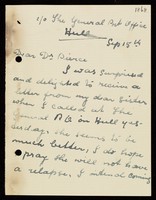 c/o The General Post Office
Hull
Sep 15th
Dear Dr Pierce
I was surprised
and delighted to receive a
letter from my dear sister
when I called at the
General P.O. in Hull yes-
terday. she seems to be
much better, I do hope
& pray she will not have
a relapse, I intend coming